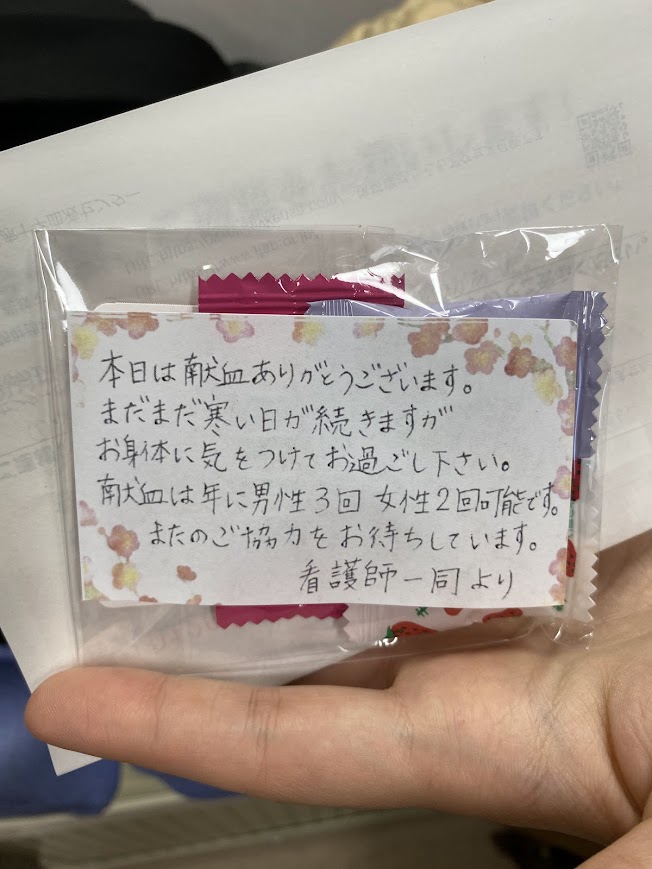 本日は献血ありがとうございます。
まだまだ寒い日が続きますが
お身体に気をつけてお過ごし下さい。
献血は年に男性3回 女性2回可能です。
またのご協力をお待ちしています。
看護師一同より